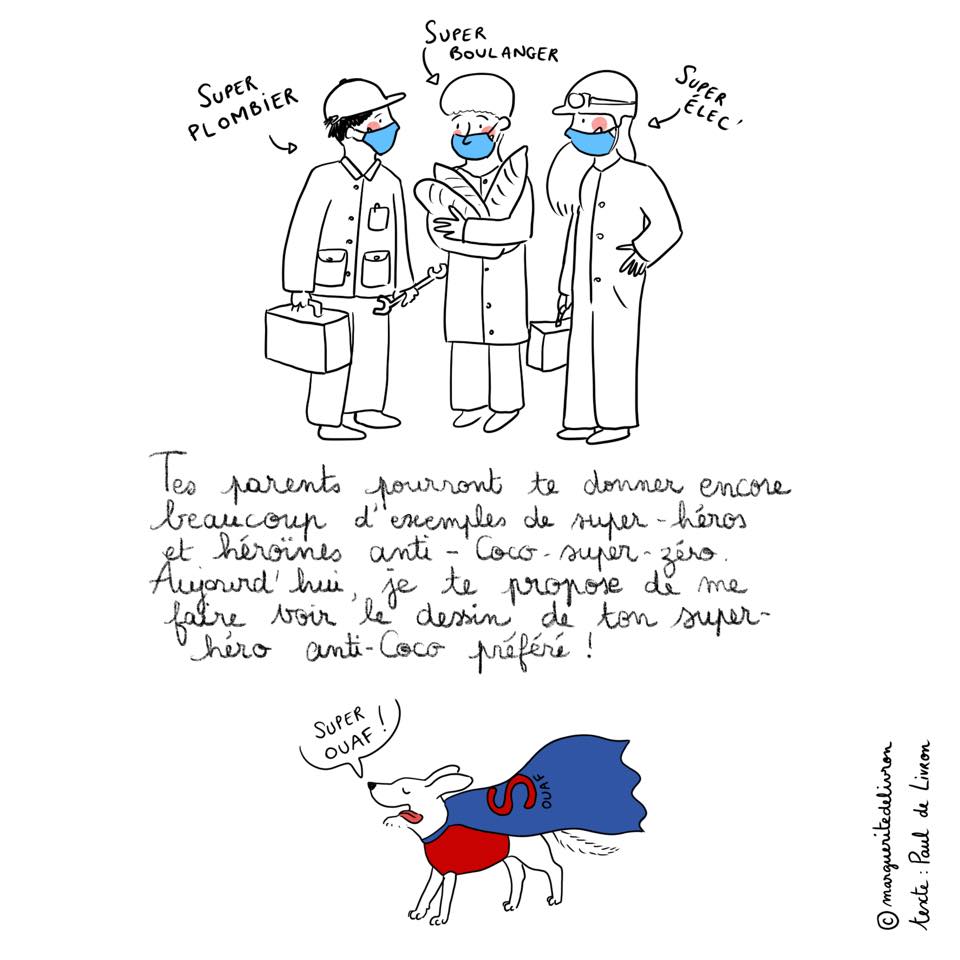 SUPER
BOULANGER
SUPER
PLOMBIER
SUPER
ÉLEC'
Tes parents pourront te donner encore
beaucoup d'exemples de super-héros
et héroïnes anti-Coco-super-zéro.
Aujourd'hui, je te propose de me
faire voir le dessin de ton super-
héro anti-Coco préféré !
SUPER
OUAF !
S
OUAF
© margueritedelivron
texte : Paul de Livron